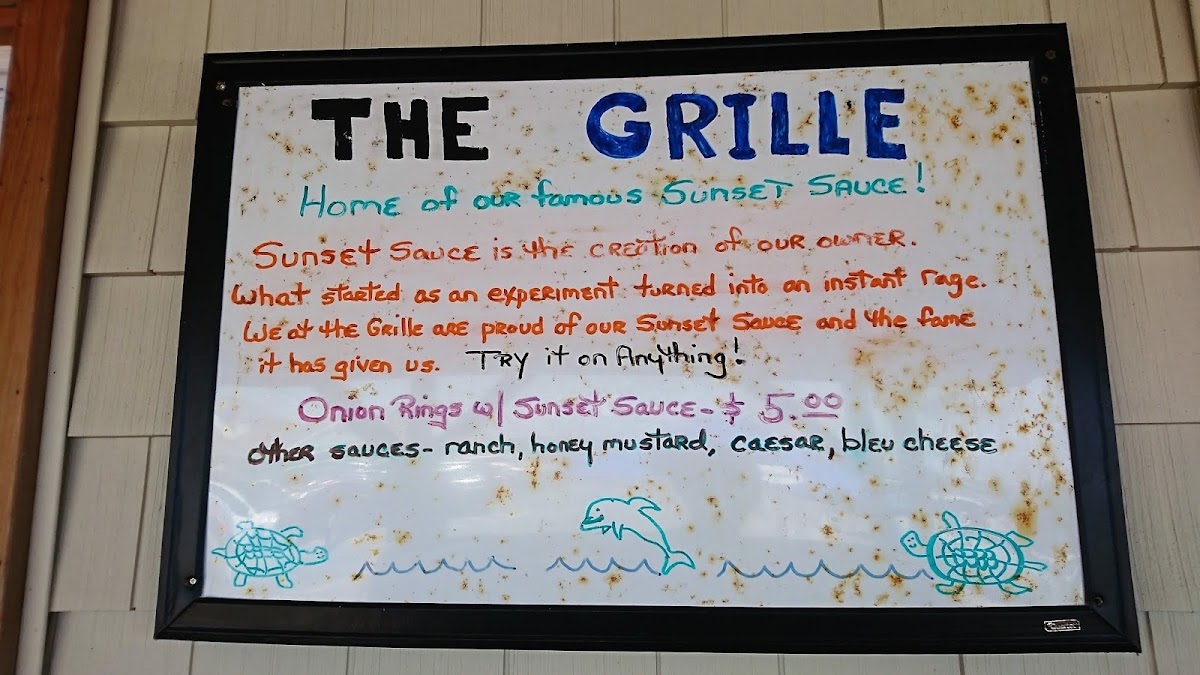 THE GRILLE
Home of our famous Sunset Sauce!
Sunset Sauce is the creation of our owner.
What started as an experiment turned into an instant rage.
We at the Grille are proud of our Sunset Sauce and the fame
it has given us. Try it on Anything!
Onion Rings w/ Sunset Sauce - $ 5.00
other sauces - ranch, honey mustard, caesar, bleu cheese